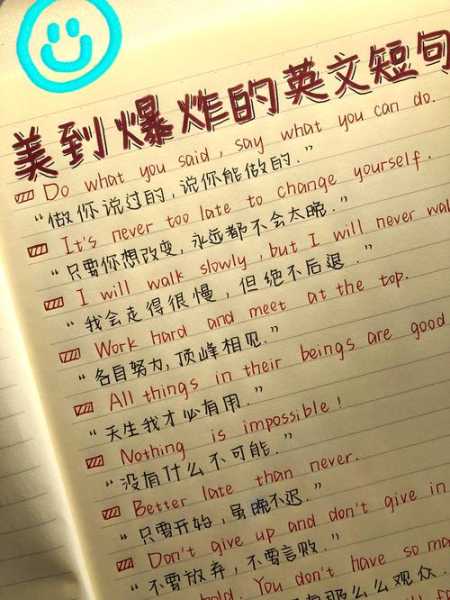 美到爆炸的英文短句
Do what you said, say what you can do.
“做你说过的,说你能做的.”
It's never too late to change yourself.
“只要你想改变,永远都不会太晚.”
I will walk slowly, but I will never wal
“我会走得很慢,但绝不后退.”
Work hard and meet at the top.
“各自努力,顶峰相见.”
All things in their beings are good
“天生我才必有用.”
Nothing is impossible!
“没有什么不可能.”
Better late than never.
“只要开始,虽晚不迟.”
Don't give up and don't give in
“不要放弃,不要言败.”
hold. You don't have so ma
那么么观众.